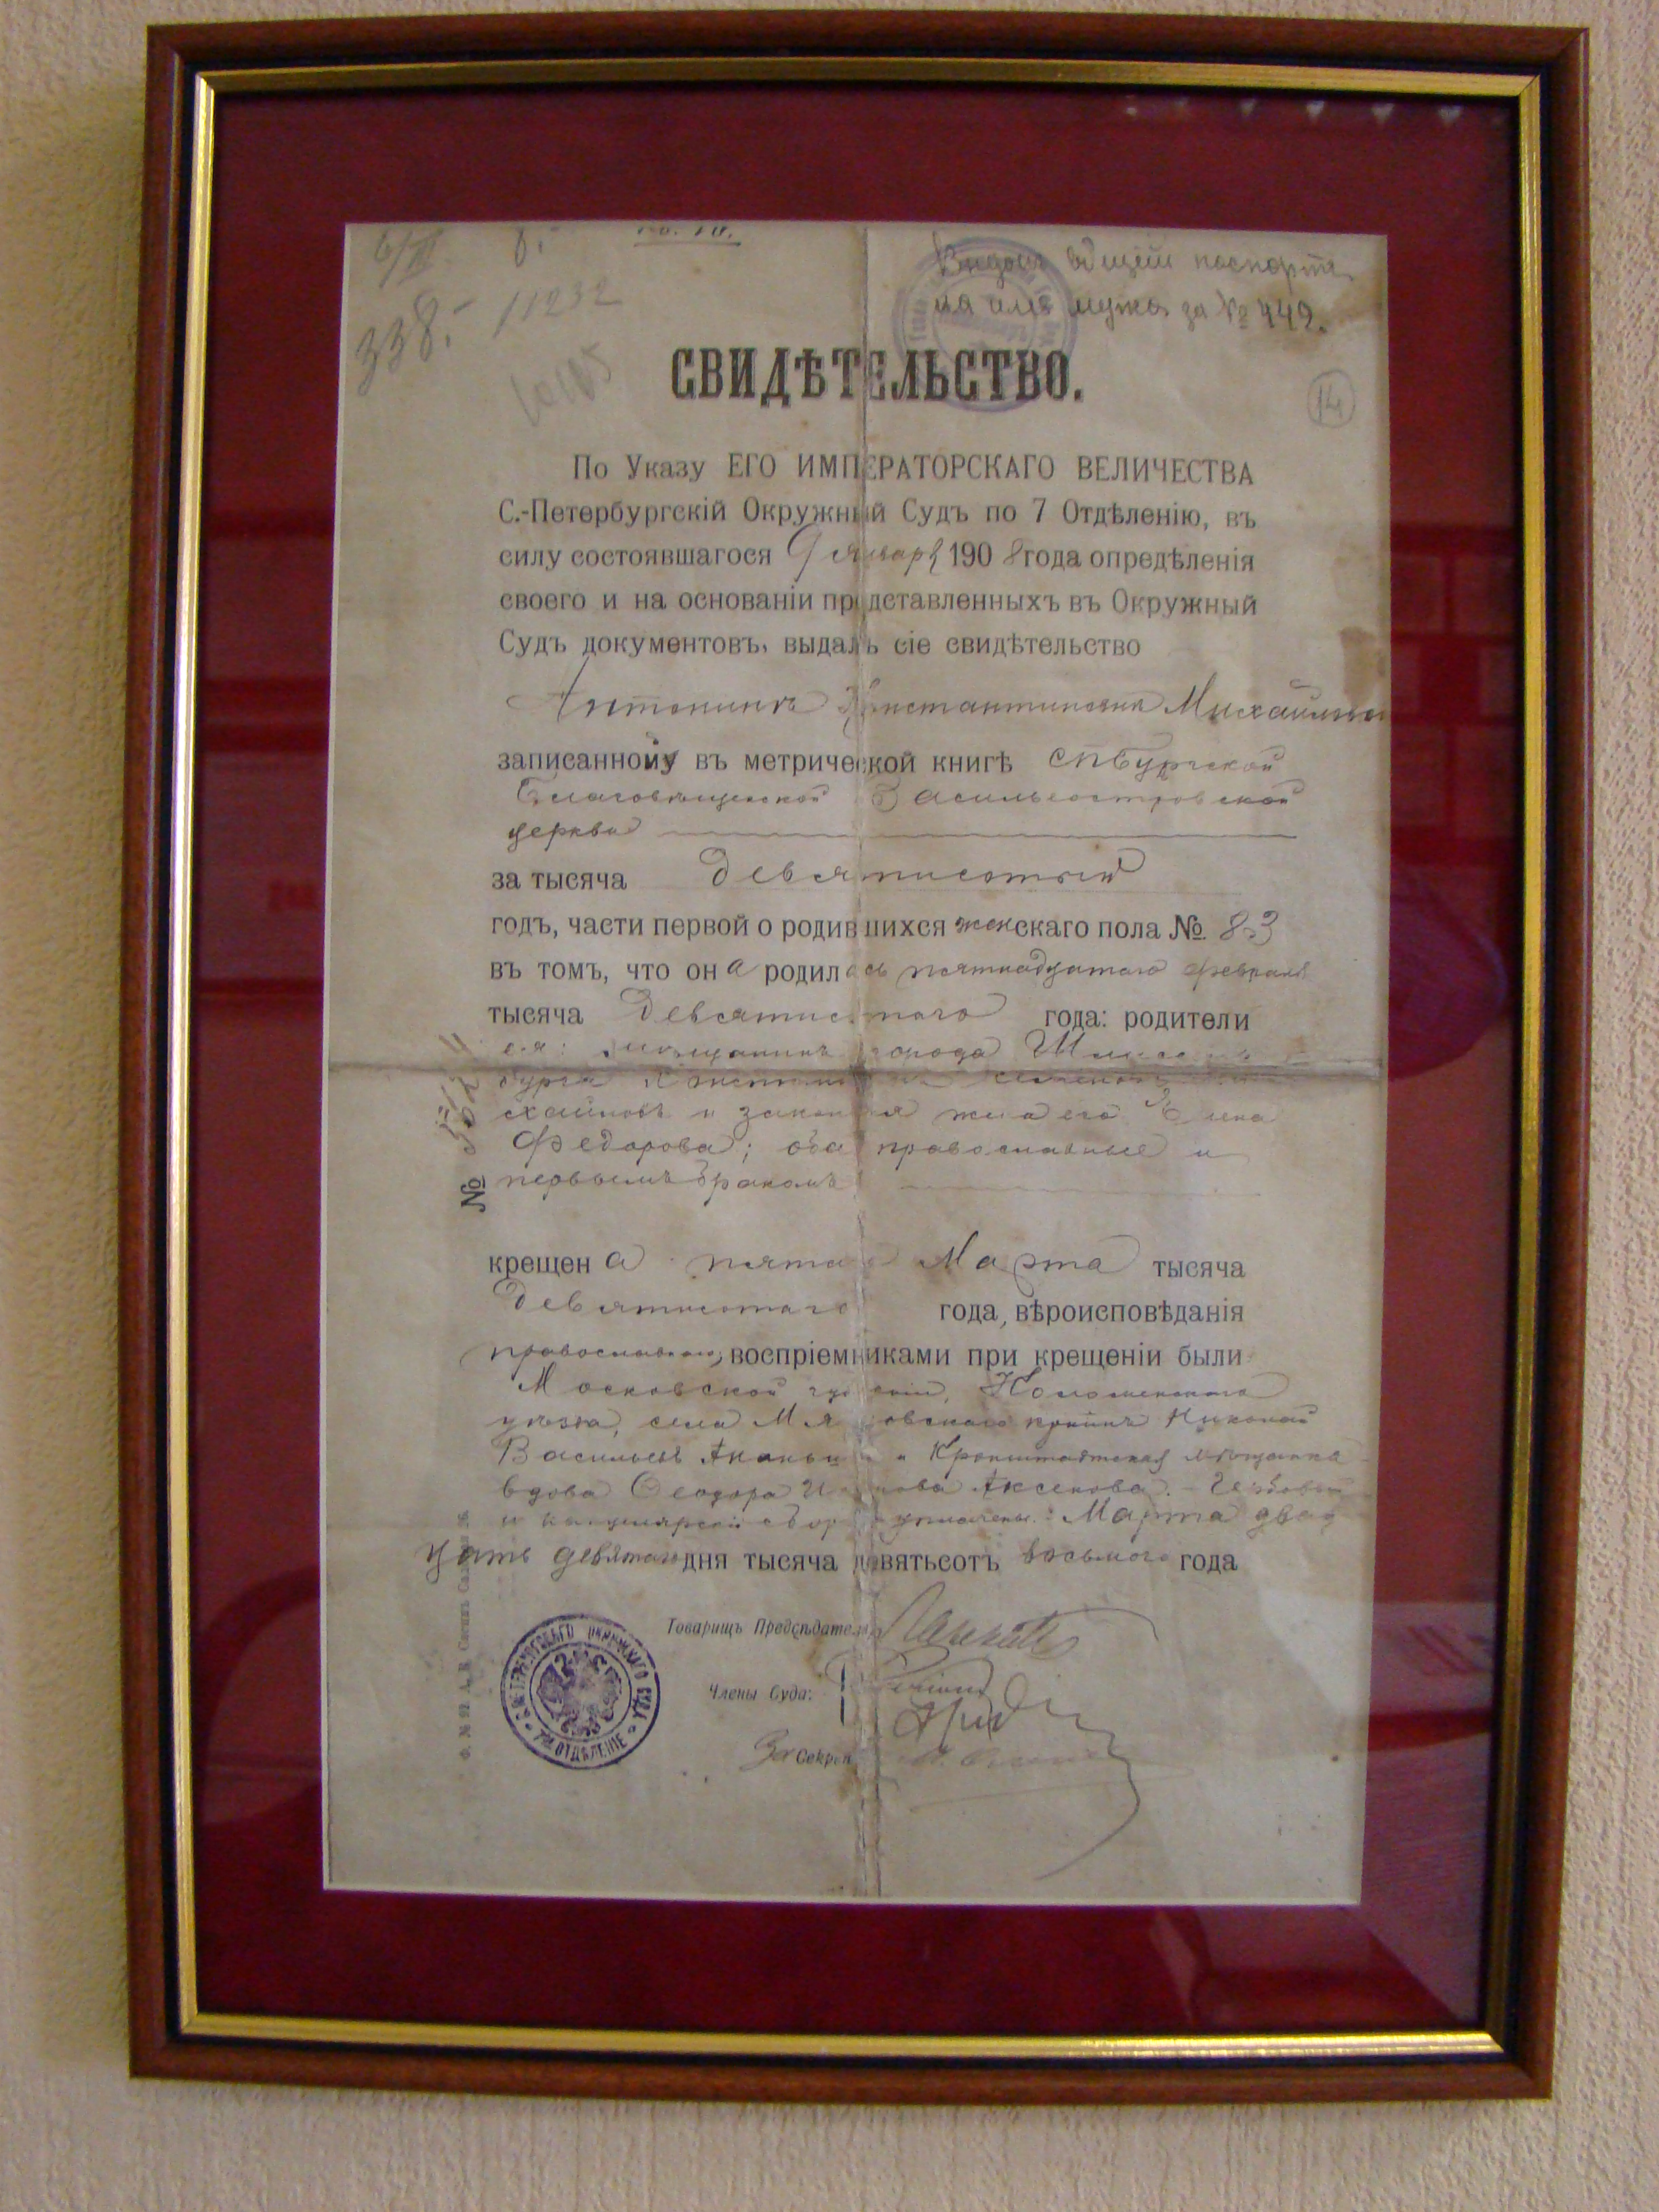 6/III 8.-
338.- 11232
Выданъ общій паспортъ
на имя мужа за № 449.
14
СВИДѢТЕЛЬСТВО.
По Указу ЕГО ИМПЕРАТОРСКАГО ВЕЛИЧЕСТВА
С.-Петербургскій Окружный Судъ по 7 Отдѣленію, въ
силу состоявшагося 9 января 1908 года опредѣленія
своего и на основаніи представленныхъ въ Окружный
Судъ документовъ, выдалъ сіе свидѣтельство
Антонинѣ Константиновнѣ Михайловой
записанному въ метрической книгѣ Спбургской
Благовѣщенской Васильеостровской
церкви
за тысяча девятисотый
годъ, части первой о родившихся женскаго пола № 83
въ томъ, что она родилась пятнадцатаго февраля
тысяча девятисотаго года: родители
ея: мѣщанинъ города Шлиссель
бурга Константинъ Ми
хайловъ и законная жена его Елена
Федорова; оба православные и
первымъ бракомъ
№
крещена пятаго Марта тысяча
девятисотаго года, вѣроисповѣданія
православнаго, воспріемниками при крещеніи были
Московской губерніи, Коломенскаго
уѣзда, села Мячковскаго Николай
Васильевъ Ананьинъ и Кронштадтская мѣщанка
вдова Ѳеодора Иванова Аксенова. - Гербовый
и канцелярскій сборъ уплачены. Марта двад
цать девятаго дня тысяча девятьсотъ восьмого года
Товарищъ Предсѣдателя
Члены Суда:
За Секрет.
С.-ПЕТЕРБУРГСКАГО ОКРУЖНАГО СУДА
7 ОТДѢЛЕНІЕ
Ф. № 92.